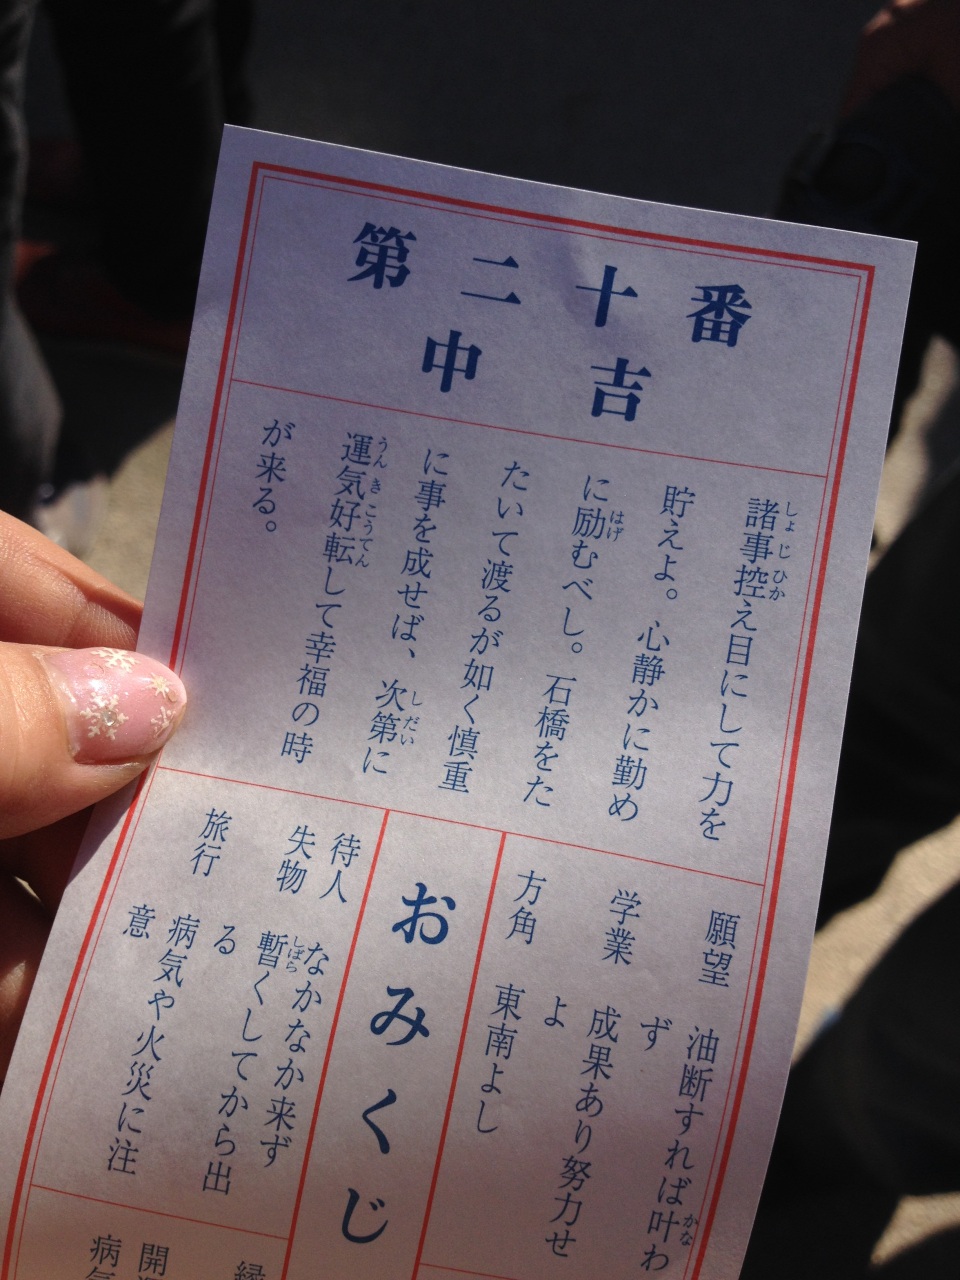 第二十番
中吉
諸事控え目にして力を
貯えよ。心静かに勤め
に励むべし。石橋をた
たいて渡るが如く慎重
に事を成せば、次第に
運気好転して幸福の時
が来る。
願望 油断すれば叶わ
ず
学業 成果あり努力せ
よ
方角 東南よし
おみくじ
待人 なかなか来ず
失物 暫くしてから出
る
旅行 病気や火災に注
意
縁
開運
病気